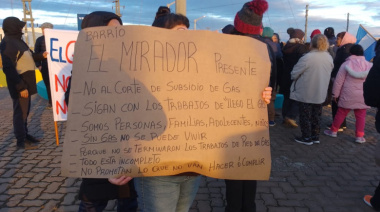 BARRIO
EL MIRADOR PRESENTE
- NO AL CORTE DE SUBSICIO DE GAS
- SIGAN CON LOS TRABAJOS DE LA RED DE GAS
- SOMOS PERSONAS, FAMILIAS, ADOLECENTES,
- SIN GAS NO SE PUEDE VIVIR
- PORQUE NO SE TERMINARON LOS TRABAJOS DE RED DE GAS
TODO ESTA INCOMPLETO
- NO PROMETAN LO QUE NO VAN HACER O CUMPLIR